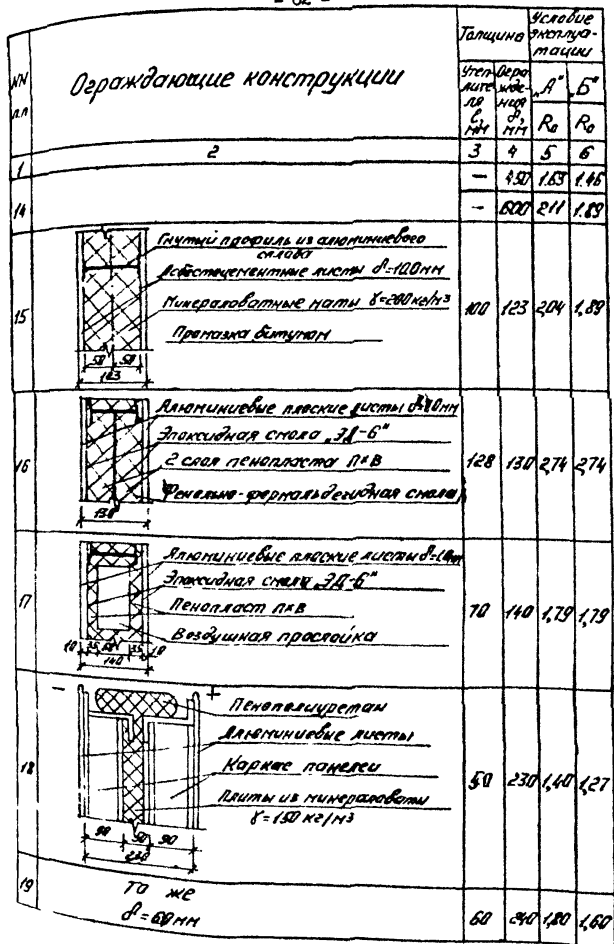 - 62 -
NN п.п
Ограждающие конструкции
Толщина
Условие эксплуатации
Утеплителя ℓ, мм
Ограждения δ, мм
„А“ R₀
„Б“ R₀
1 2 3 4 5 6
14 — 490 1.63 1.46
— 600 2.11 1.89
15
Гнутый профиль из алюминиевого
сплава
Асбестоцементные листы δ=10.0мм
Минераловатные маты γ=200 кг/м³
Промазка битумом
50 50
123
100 123 2,04 1,89
16
Алюминиевые плоские листы
Эпоксидная смола „ЭД-6“
2 слоя пенопласта ПХВ
Фенольно-формальдегидная смола
130
128 130 2,74 2,74
17
Алюминиевые плоские листы
Эпоксидная смола „ЭД-6“
Пенопласт ПХВ
Воздушная прослойка
10 35 35 10
140
70 140 1,79 1,79
18
— +
Пенополиуретан
Алюминиевые листы
Каркас панелей
Плиты из минераловаты
γ=150 кг/м³
90 50 90
230
50 230 1,40 1,27
19
То же
δ=60мм
60 240 1,80 1,60